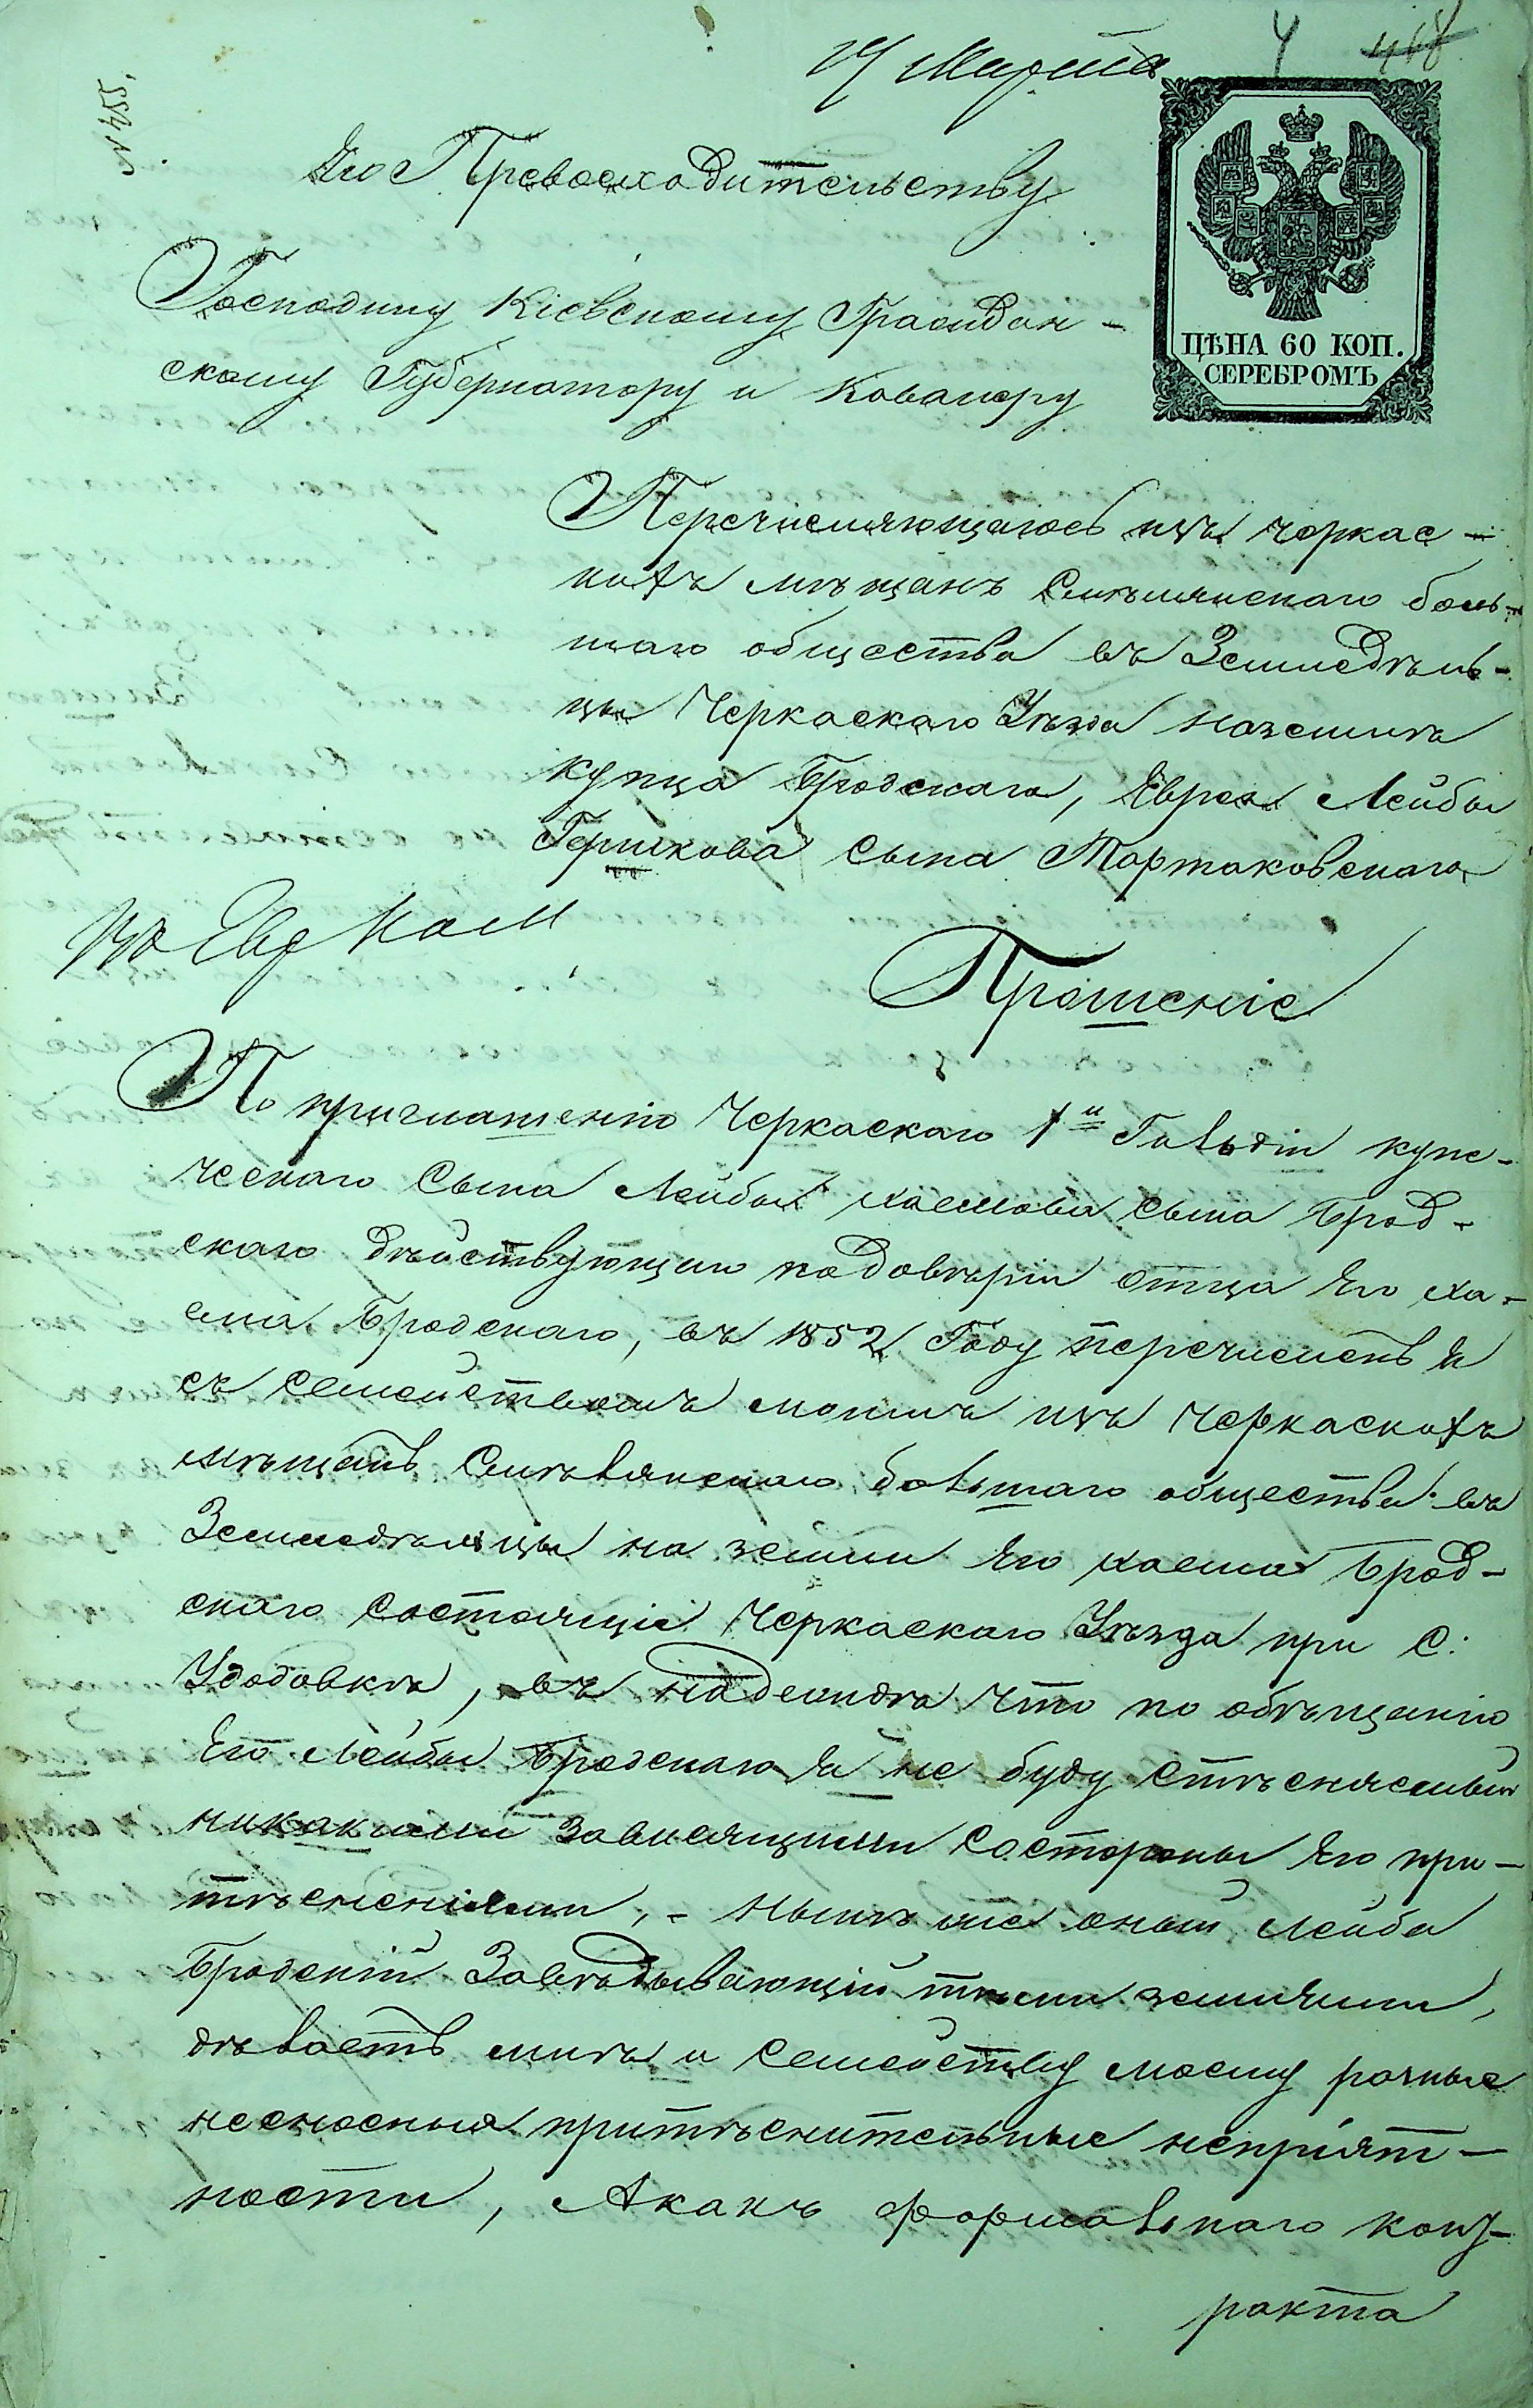 14 Марта
4
468
№ 455.
Его Превосходительству
Господину Кіевскому Граждан-
скому Губернатору и Кавалеру
ЦѢНА 60 КОП.
СЕРЕБРОМЪ
Перечисляющагось изъ черкас-
кихъ мѣщанъ Смѣлянскаго боль-
шаго общества въ Земледѣль-
цы Черкаскаго Уѣзда на землѣ
купца Бродскаго, Еврея Лейбы
Гершкова сына Тартаковскаго
Въ Евр Ком
Прошеніе
По приглашенію Черкаскаго 1й Гильдіи купе-
ческаго Сына Лейбы Хаемова сына Брод-
скаго дѣйствующаго подовѣрію отца Его Ха-
ема Бродскаго, въ 1852 Году перечисленъ я
съ семействомъ моимъ изъ Черкаскихъ
мѣщанъ Смѣлянскаго большаго общества въ
Земледѣльцы на земли Его Хаема Брод-
скаго состоящіе Черкаскаго Уѣзда при С:
Удобовкѣ, въ надеждѣ что по обѣщанію
Его Лейбы Бродскаго я не буду стѣсняемый
никакими зависящими состороны Его при-
тѣсненіями, - Нынѣ же оный Лейба
Бродскій Завѣдывающій тѣми землями,
дѣлаетъ мнѣ и семейству моему разные
несносныя притѣснительные непріят-
ности, Акакъ формальнаго конт-
ракта